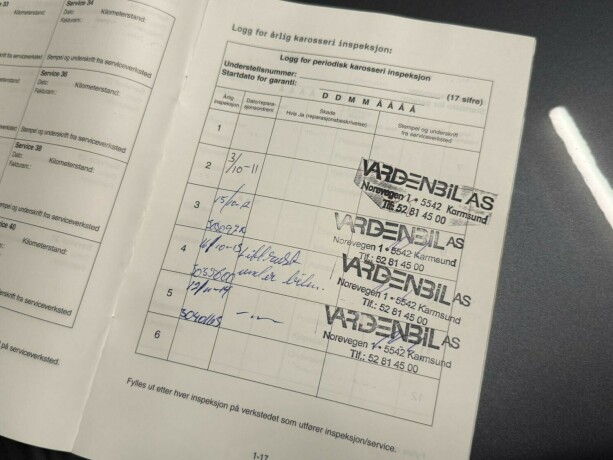 Service 34
Dato:
Kilometerstand:
Fakturanr.:
Kilometerstand:
Stempel og underskrift
fra serviceverksted
Service 36
Dato:
Kilometerstand:
Fakturanr.:
fra serviceverksted
Stempel og underskrift
fra serviceverksted
Service 38
Dato:
Kilometerstand:
Fakturanr.:
Stempel og underskrift
fra serviceverksted
Service 40
Kilometerstand:
fra serviceverksted
på serviceverksted.
Logg for årlig karosseri inspeksjon:
Logg for periodisk karosseri inspeksjon
Understellsnummer: (17 sifre)
Startdato for garanti: D D M M Å Å Å Å
Årlig
inspeksjon
Skade
Hvis Ja (reparasjonsbeskrivelse)
Stempel og underskrift
fra serviceverksted
1
2
3/10-11
VARDENBIL AS
Norevegen 1 • 5542 Karmsund
Tlf. 52 81 45 00
3
VARDENBIL AS
Norevegen 1 • 5542 Karmsund
Tlf.: 52 81 45 00
4
under bilen.
VARDENBIL AS
Norevegen 1 • 5542 Karmsund
Tlf.: 52 81 45 00
5
VARDENBIL AS
Norevegen 1 • 5542 Karmsund
Tlf.: 52 81 45 00
6
Fylles ut etter hver inspeksjon på verkstedet som utfører inspeksjon/service.
1-17